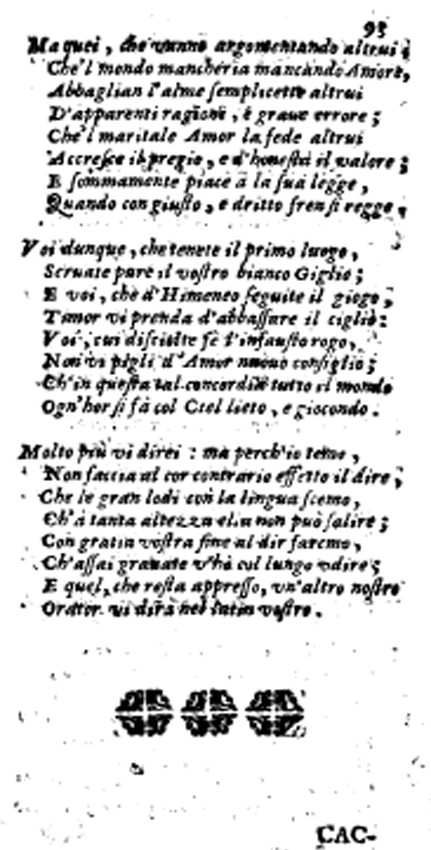 93
Ma quei, che vanno argomentando altrui,
Che'l mondo mancheria mancando Amore,
Abbaglian l'alme semplicette altrui
D'apparenti ragioni, è graue errore;
Che'l maritale Amor la fede altrui
Accresce il pregio, e d'honestà il valore;
E sommamente piace a la sua legge,
Quando con giusto, e dritto fren si regge.
Voi dunque, che tenete il primo luogo,
Seruate pure il vostro bianco Giglio;
E voi, che d'Himeneo seguite il giogo,
Timor vi prenda d'abbassare il ciglio:
Voi, cui disciolte fè l'infausto rogo,
Non vi pigli d'Amor nuouo consiglio;
Ch'in questa tal concordia tutto il mondo
Ogn'hor si fà col Ciel lieto, e giocondo.
Molto più vi direi: ma perch'io temo,
Non faccia al cor contrario effetto il dire,
Che le gran lodi con la lingua scemo,
Ch'à tanta altezza ella non può salire;
Con gratia vostra fine al dir faremo,
Ch'assai grauate v'hà col lungo vdire;
E quel, che resta appresso, vn'altro nostro
Orator vi dirà nel latin vostro.
CAC-